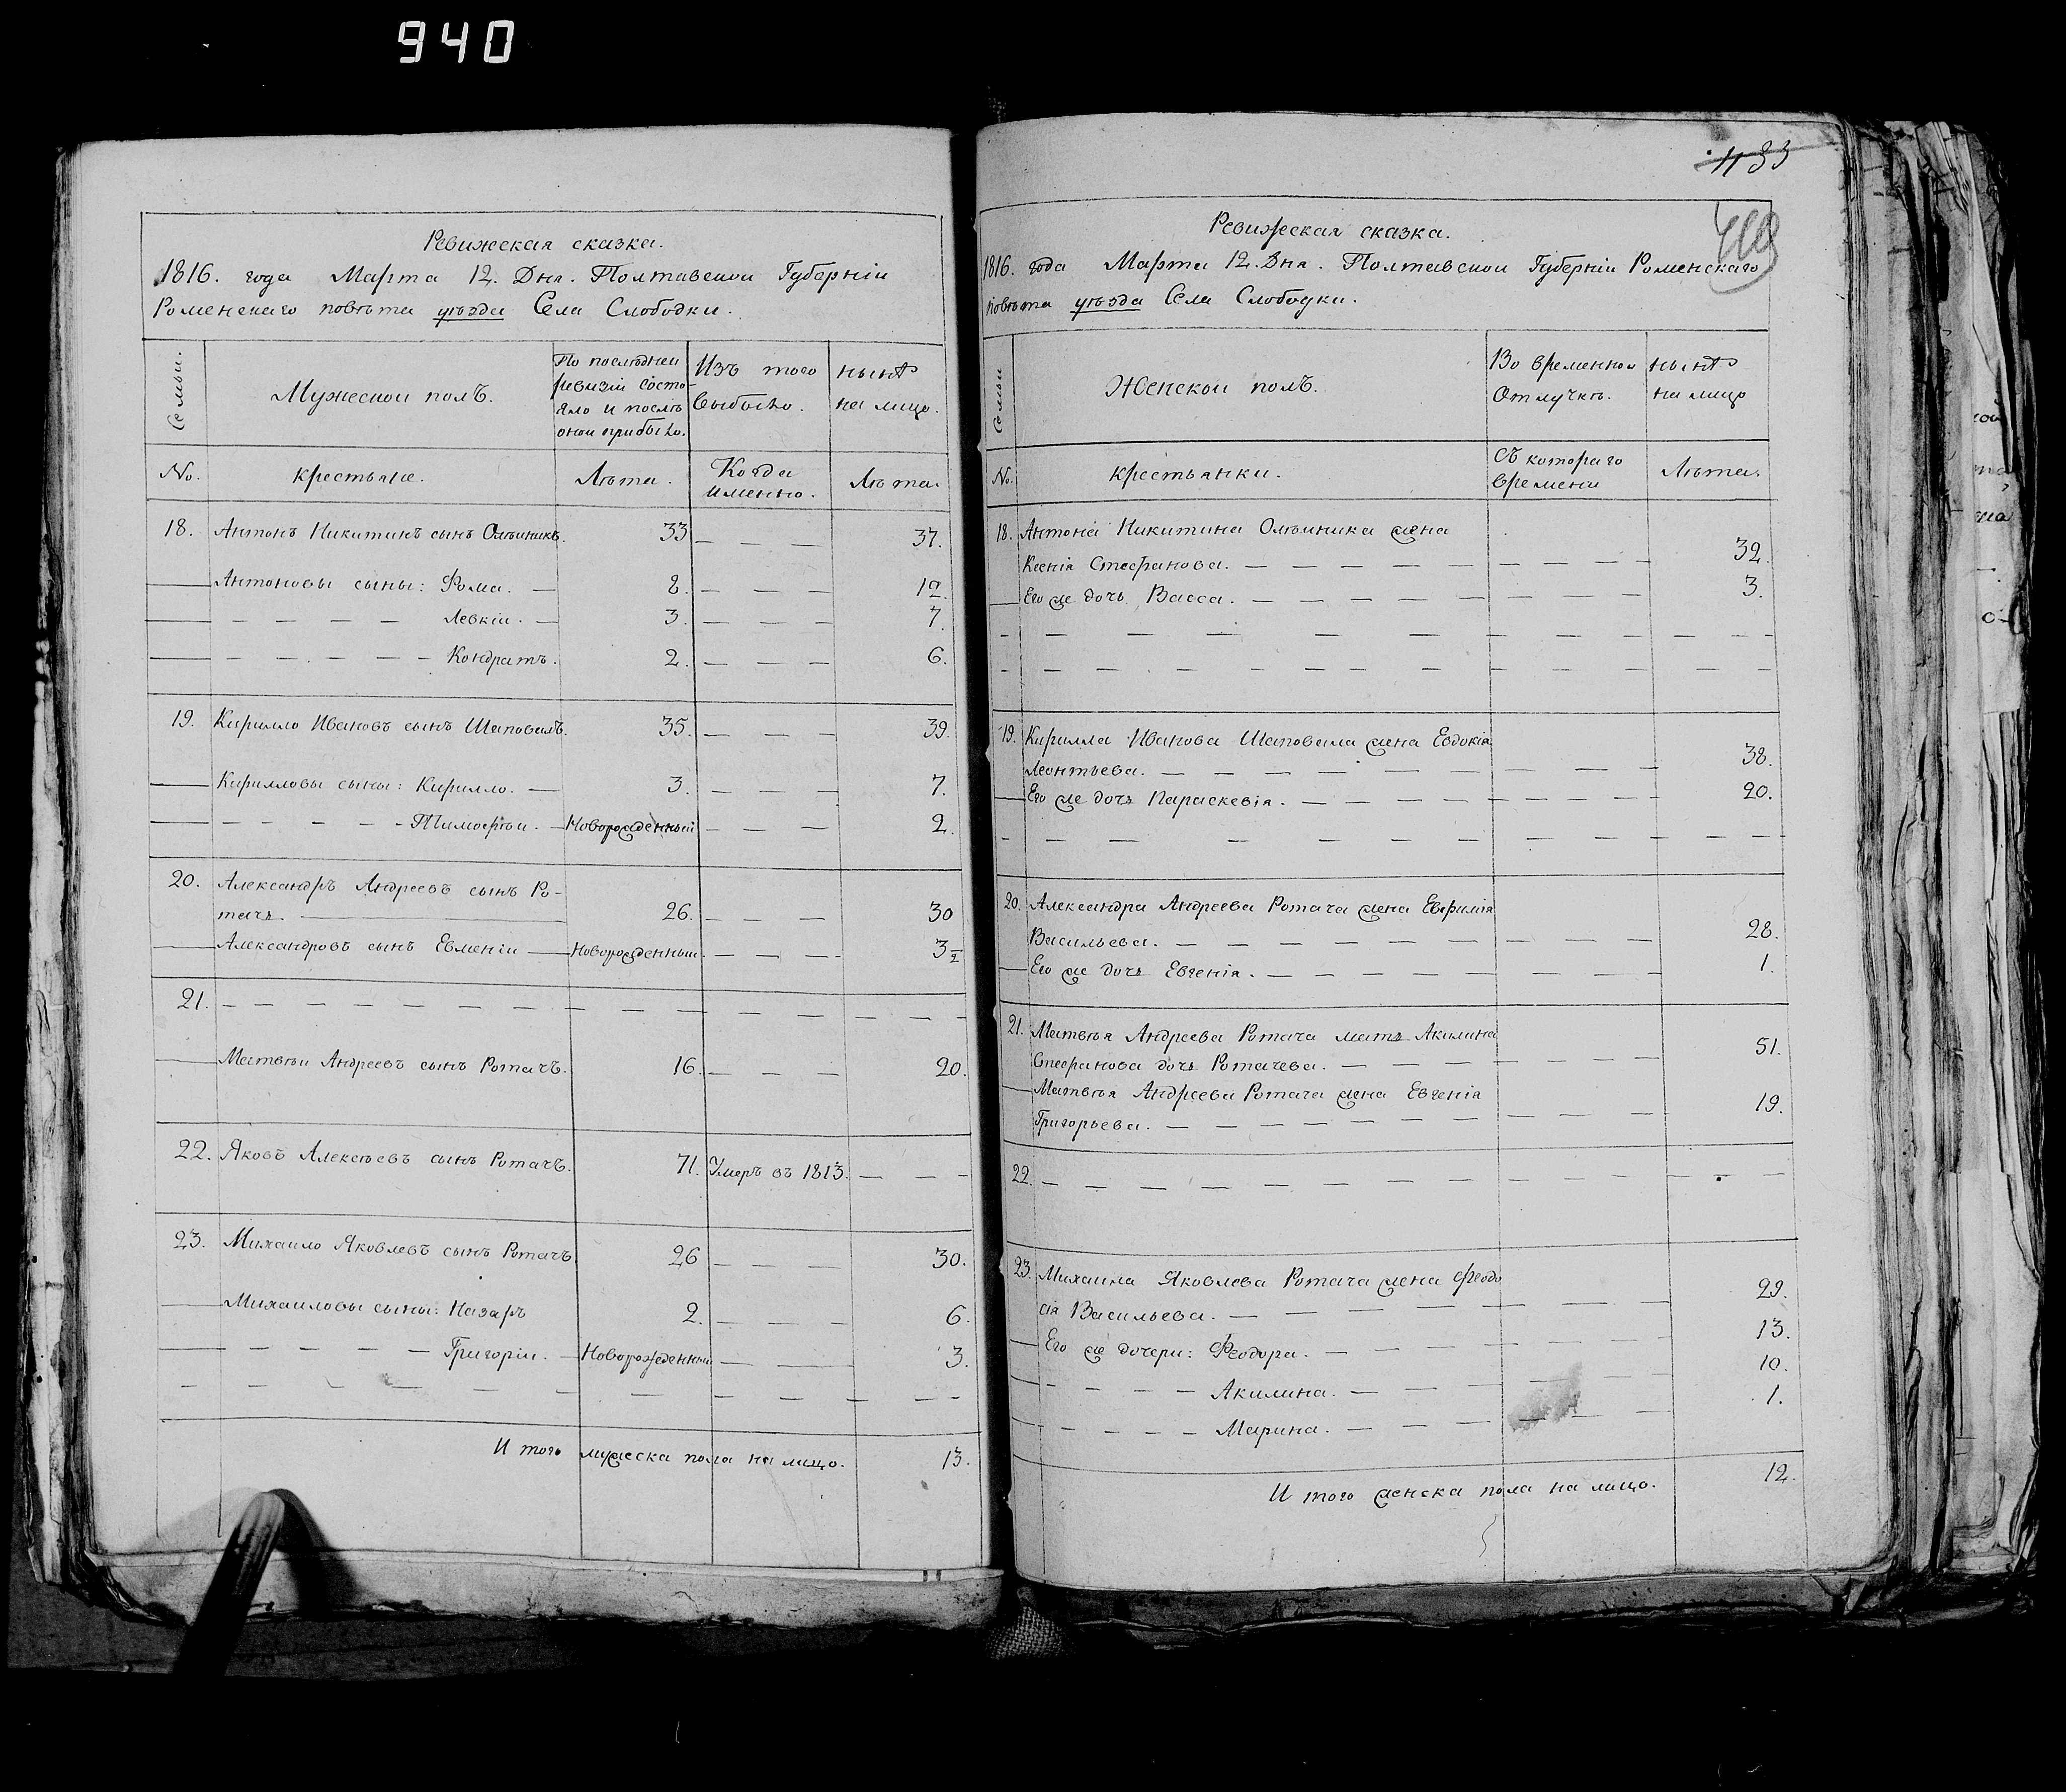 940
Ревижская сказка.
1816. года Марта 12. Дня. Полтавской Губернїи
Роменскаго повѣта уѣзда Села Слободки.
Семьи.
Мужескои полъ.
По послѣднеи
ревизїи состо-
яло и послѣ
онои прибыло.
Изъ того
выбыло.
нынѣ
на лицо.
No.
крестьяне.
Лѣта.
Когда
именно.
Лѣта.
18. Антонъ Никитинъ сынъ Олѣиникъ. 33 — — — 37.
— Антоновы сыны: Фома. — 8. — — — 12.
— — — — — Левкіи. — 3. — — — 7.
— — — — — — Кондратъ. 2. — — — 6.
19. Кирилло Ивановъ сынъ Шаповалъ. 35. — — — 39.
— Кирилловы сыны: Кирилло. — 3. — — — 7.
— — — — — — Тимофѣи. — Новорожденныи — — — 2.
20. Александръ Андреевъ сынъ Ро-
тачъ. — 26. — — 30
— Александровъ сынъ Евменїи — Новорожденныи. — — — 3½
21. — — — — — — — — — — — — — — — — — —
— Матвѣи Андреевъ сынъ Ротачъ. 16. — — — 20.
22. Яковъ Алексѣевъ сынъ Ротачъ. 71. Умеръ въ 1813. — — —
23. Михаило Яковлевъ сынъ Ротачъ 26 — — — 30.
— Михаиловы сыны: Назаръ 2. — — — 6.
— — — — — Григорїи. — Новорожденныи — — 3.
— — — — — — — — — — — — —
И того мужеска пола на лицо. 13.
433
Ревижская сказка.
1816. года Марта 12. Дня. Полтавской Губернїи Роменскаго
повѣта уѣзда Села Слободки.
Семьи
Женскои полъ.
Во временнои
Отлучкѣ.
нынѣ
на лицо
No.
крестьянки.
Съ котораго
времени
Лѣта.
18. Антона Никитина Олѣиника жена
Ксенїя Стефанова. — — — — — — — — — 32.
— Его же дочь Васса. — — — — — — — — — 3.
— — — — — — — — — — — — —
— — — — — — — — — — — — —
19. Кирилла Иванова Шаповала жена Евдокїя
Леонтьева. — — — — — — — — — — 38.
— Его же дочь Параскевїя. — — — — — — — — — 20.
— — — — — — — — — — — — —
20. Александра Андреева Ротача жена Евфимїя
Васильева. — — — — — — — — — — 28.
— Его же дочь Евгенїя. — — — — — — — — 1.
21. Матвѣя Андреева Ротача мать Акилина
Стефанова дочь Ротачева. — — — — — — — 51.
— Матвѣя Андреева Ротача жена Евгенїя
Григорьева. — — — — — — — — — — 19.
22. — — — — — — — — — — — — — —
23. Михаила Яковлева Ротача жена Феодо
сїя Васильева. — — — — — — — — 29.
— Его же дочери: Феодора. — — — — — — 13.
— — — — — Акилина. — — — — — — 10.
— — — — — Марина. — — — — — — 1.
И того женска пола на лицо. 12.